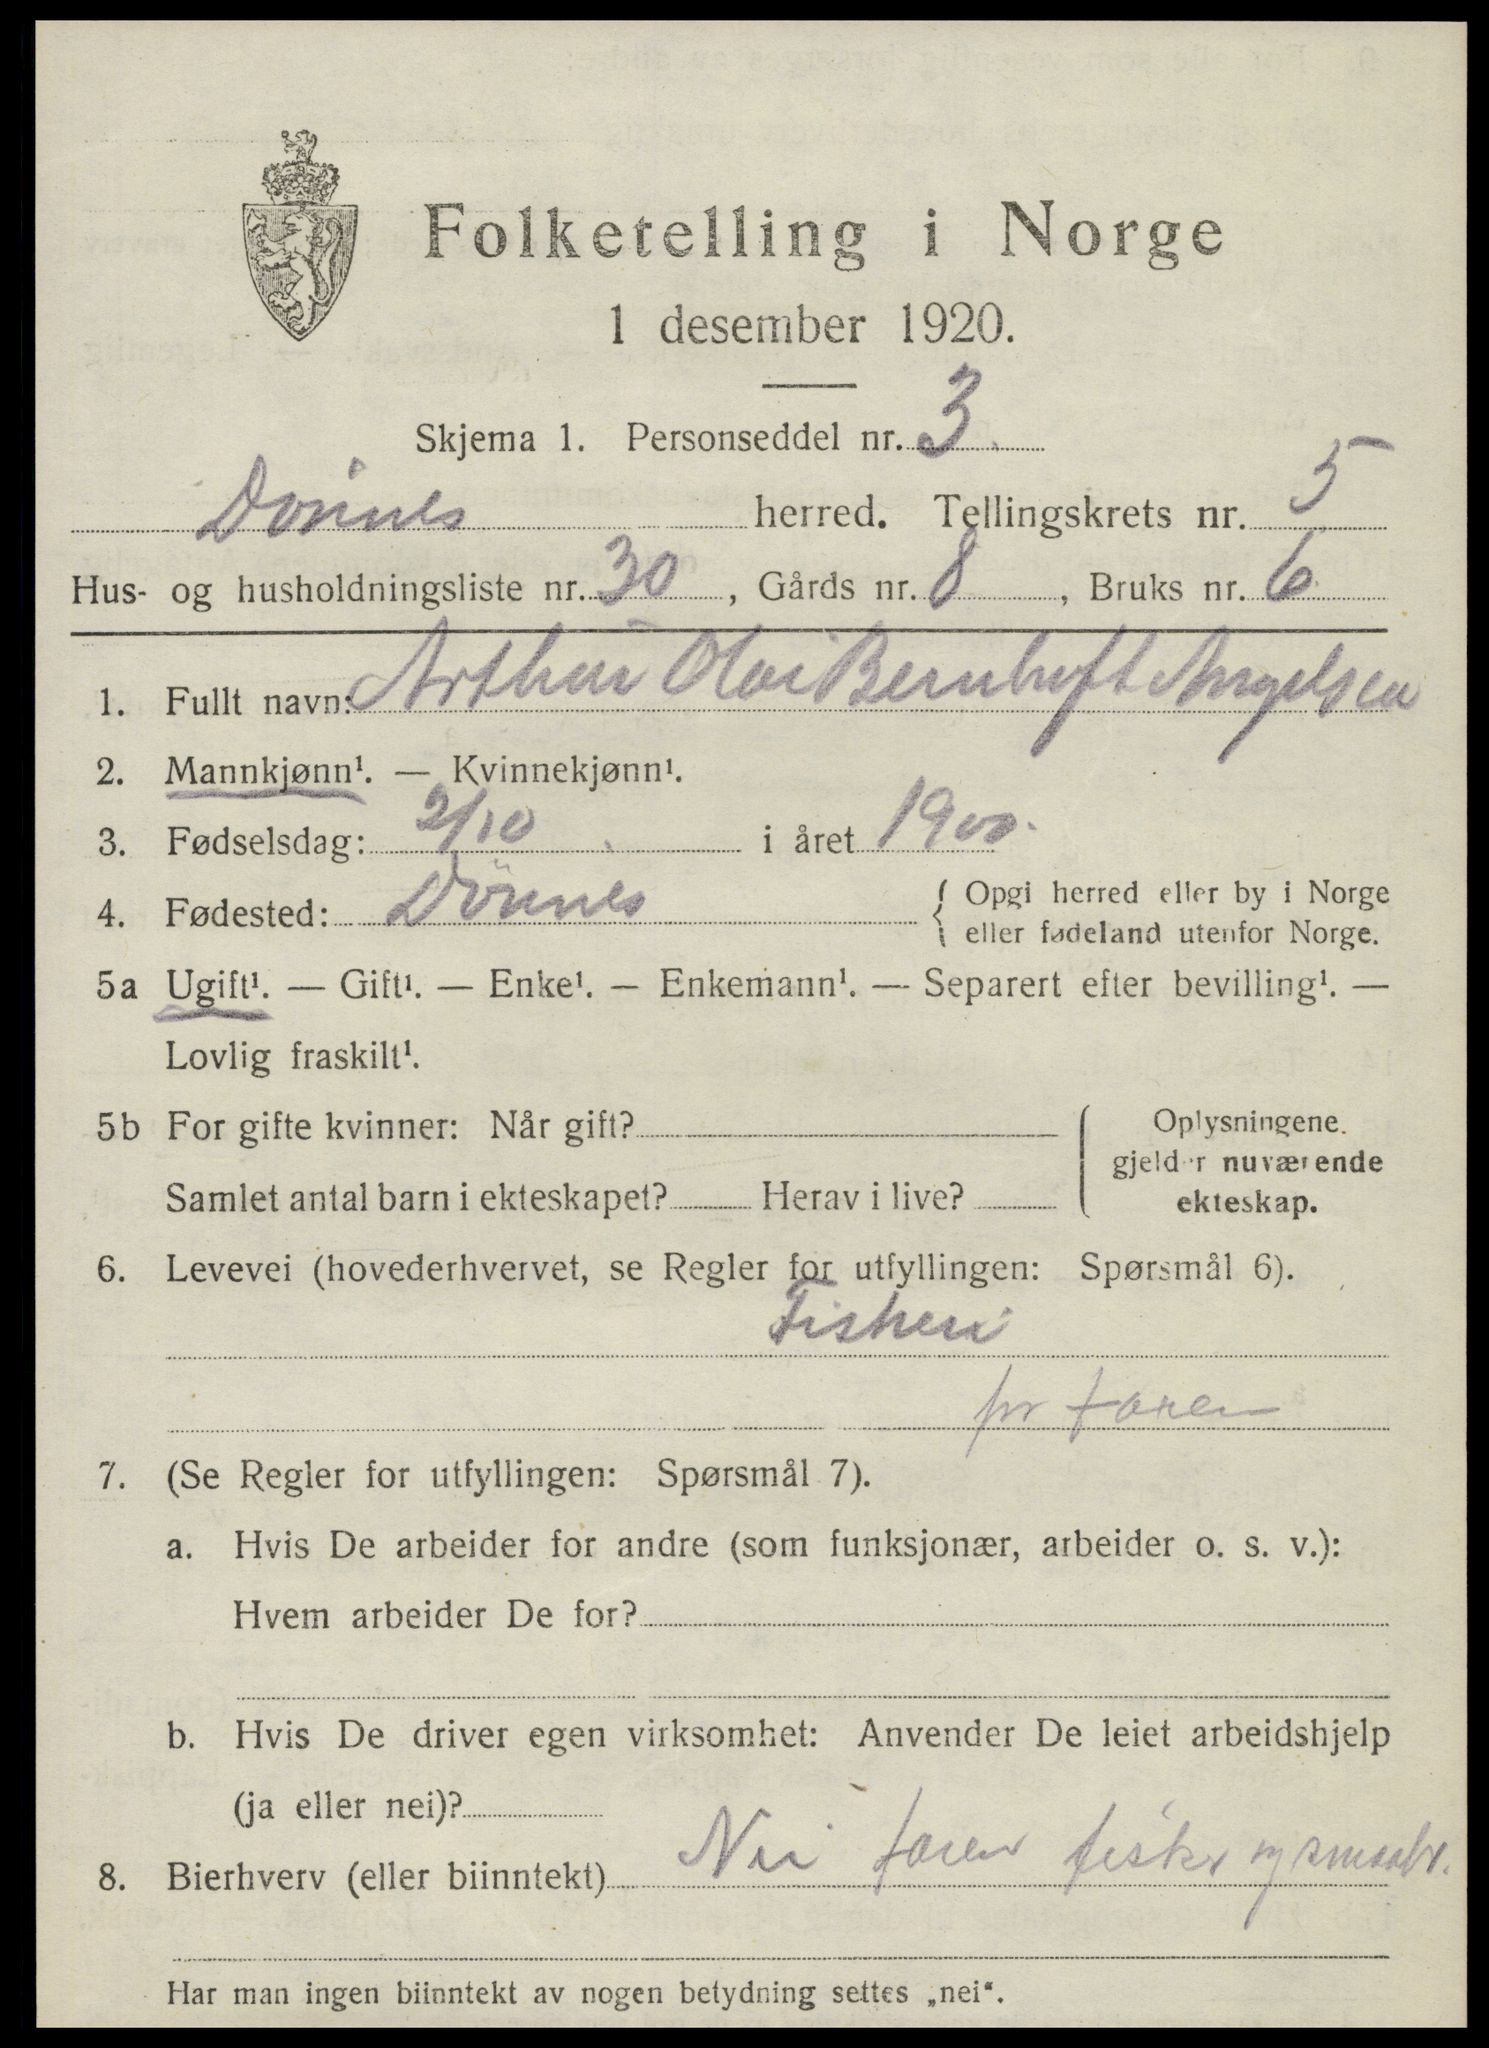 Folketelling i Norge
1 desember 1920.
Skjema 1. Personseddel nr. 3.
Dönnes herred. Tellingskrets nr. 5
Hus- og husholdningsliste nr. 30, Gårds nr. 8, Bruks nr. 6
1. Fullt navn: Arthur Olai Bernhoft Angelsen
2. Mannkjønn¹. — Kvinnekjønn¹.
3. Fødselsdag: 2/10 i året 1900.
4. Fødested: Dönnes { Opgi herred eller by i Norge
eller fødeland utenfor Norge.
5a Ugift¹. — Gift¹. — Enke¹. — Enkemann¹. — Separert efter bevilling¹. —
Lovlig fraskilt¹.
5b For gifte kvinner: Når gift? { Oplysningene
gjelder nuværende
Samlet antal barn i ekteskapet? Herav i live? ekteskap.
6. Levevei (hovederhvervet, se Regler for utfyllingen: Spørsmål 6).
Fiskeri
for faren
7. (Se Regler for utfyllingen: Spørsmål 7).
a. Hvis De arbeider for andre (som funksjonær, arbeider o. s. v.):
Hvem arbeider De for?
b. Hvis De driver egen virksomhet: Anvender De leiet arbeidshjelp
(ja eller nei)?
8. Bierhverv (eller biinntekt) Nei faren fisker og smaabr.
Har man ingen biinntekt av nogen betydning settes „nei“.